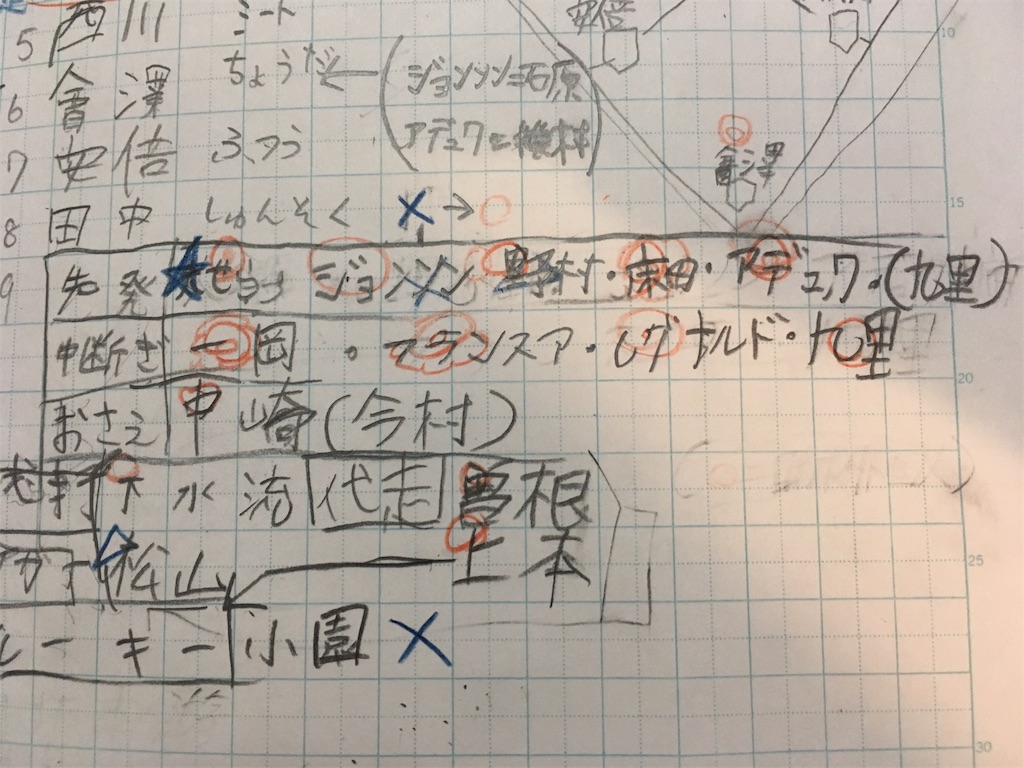 5 西川 ミート
6 會澤 ちょうだ
7 安倍 ふつう
8 田中 しゅんそく ×→○
9
(ジョンソン=石原
アデュワ=
安倍
會澤
先発 大せら ジョンソン 野村・床田・アデュワ・(九里)
中断ぎ 一岡・フランスア・レグナルド・九里
おさえ 中崎(今村)
下水流 代走 曽根
上本
松山
ルーキー 小園 ×
10
15
20
25
30